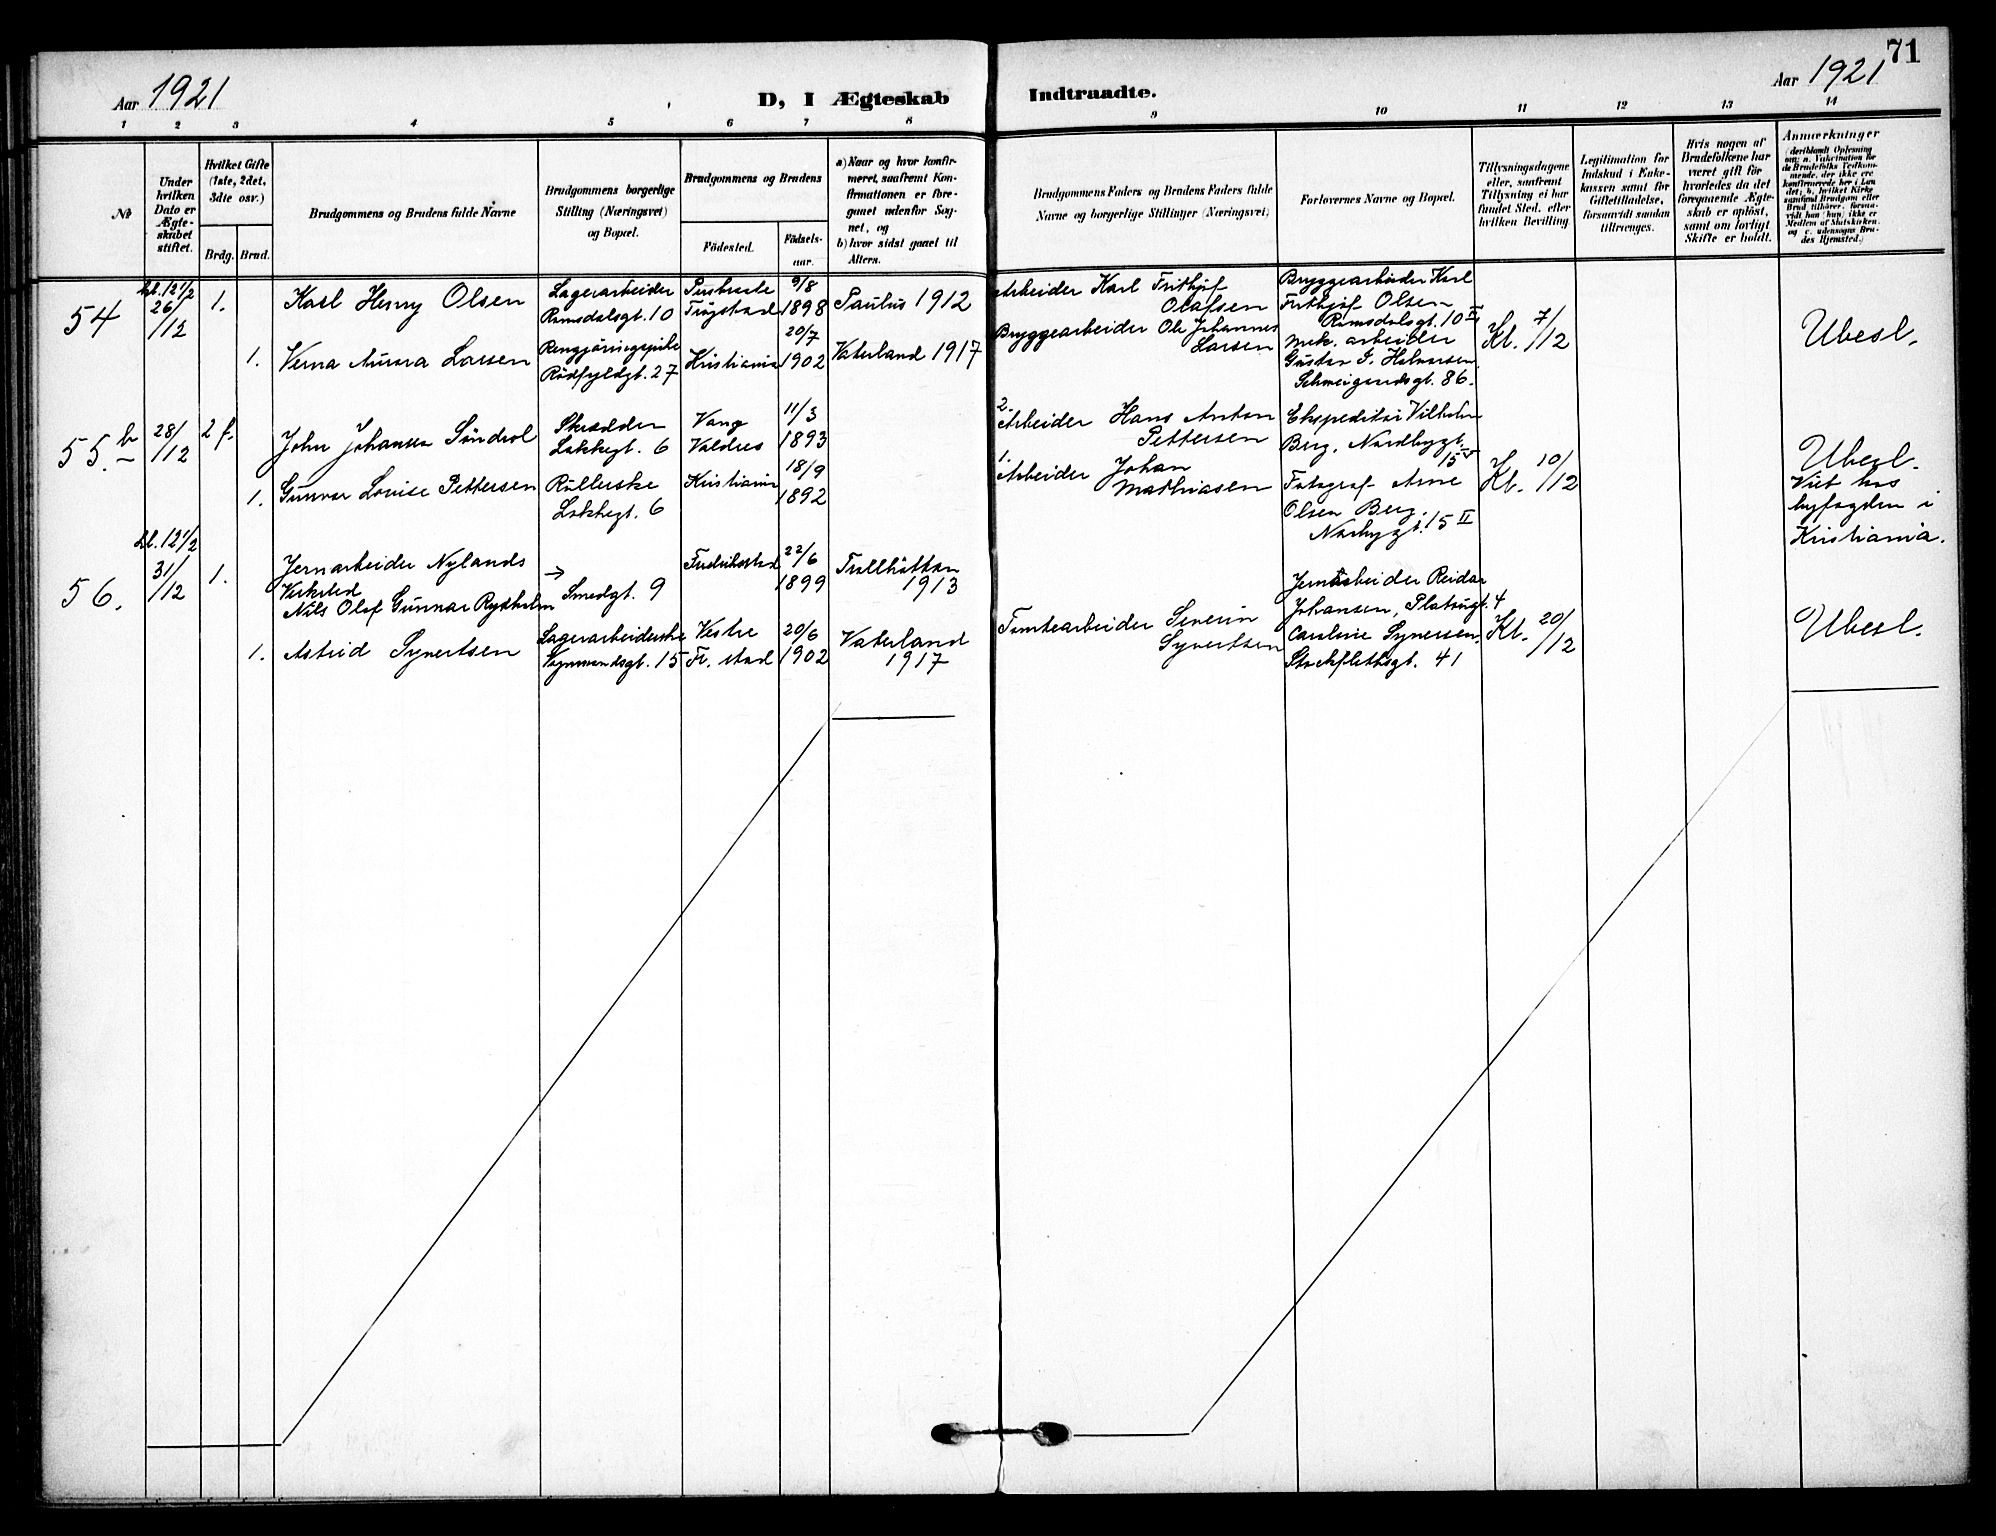 71
Aar 1921
D, I Ægteskab
Indtraadte.
Aar 1921
1 2 3 4 5 6 7 8 9 10 11 12 13 14
№
Under
hvilken
Dato er
Ægte-
skabet
stiftet.
Hvilket Gifte
(1ste, 2det,
3die osv.)
Brdg. Brud.
Brudgommens og Brudens fulde Navne
Brudgommens borgerlige
Stilling (Næringsvei)
og Bopæl.
Brudgommens og Brudens
Födested.
Födsels-
aar.
a) Naar og hvor konfir-
meret, saafremt Kon-
firmationen er fore-
gaaet udenfor Sog-
net, og
b) hvor sidst gaaet til
Alters.
Brudgommens Faders og Brudens Faders fulde
Navne og borgerlige Stillinger (Næringsvei)
Forlovernes Navne og Bopæl.
Tillysningsdagene
eller, saafremt
Tillysning ei har
fundet Sted, efter
hvilken Bevilling
Legitimation for
Indskud i Enke-
kassen samt for
Giftetilladelse,
forsaavidt saadan
tiltrænges.
Hvis nogen af
Brudefolkene har
været gift för
hvorledes da det
foregaaende Ægte-
skab er oplöst,
samt om lovligt
Skifte er holdt.
Anmærkninger
(deriblandt Oplysning
om: a. Vakcination for
de Brudefolks Vedkom-
mende, der ikke ere
konfirmerede her i Lan-
det; b. hvilket Kirke-
samfund Brudgom eller
Brud tilhører, forsaa-
vidt han (hun) ikke er
Medlem af Statskirken,
og c. udensogns Bru-
des Hjemsted.)
54
kl. 12 1/2
26/12
1.
Karl Henry Olsen
Lagerarbeider
Romsdalsgt. 10
Trøgstad
9/8
1898
Paulus 1912
Arbeider Karl Frithjof
Olafsen
Bryggearbeider Karl
Frithjof Olsen
Romsdalsgt. 10 II
Kl. 7/12
Ubesl.
1.
Verna Aurora Larsen
Rengjöringspike
Rödfyldgt. 27
Kristiania
20/7
1902
Vaterland 1917
Bryggearbeider Ole Johannes
Larsen
mek. arbeider
Gustav J. Halvorsen
Schweigaardsgt. 86.
55. b
28/12
2 f.
John Johansen Söndrol
Skrædder
Lakkegt. 6
Vang
Valdres
11/3
1893
2.
Arbeider Hans Anton
Pettersen
Ekspeditör Vilhelm
Berg, Nordbygt.
15
Kl. 10/12
Ubesl.
Viet hos
byfogden i
Kristiania.
1.
Gunvor Louise Pettersen
Rullerske
Lakkegt. 6
Kristiania
18/9
1892
1.
Arbeider Johan
Mathiasen
Fotograf Arne
Olsen Berg,
Norbygt. 15 II
56.
kl. 12 1/2
31/12
1.
Jernarbeider Nylands
Verksted
Nils Olof Gunnar Rydholm
→
Smedgt. 9
Fredrikstad
22/6
1899
Trollhättan
1913
Jernarbeider Reidar
Johansen, Platougt. 4
Kl. 20/12
Ubesl.
1.
Astrid Syvertsen
Lagerarbeiderske
15
Vestre
Fr. stad
20/6
1902
Vaterland
1917
Tomtearbeider Severin
Syvertsen
Caroline Syversen,
Stockflethsgt. 41